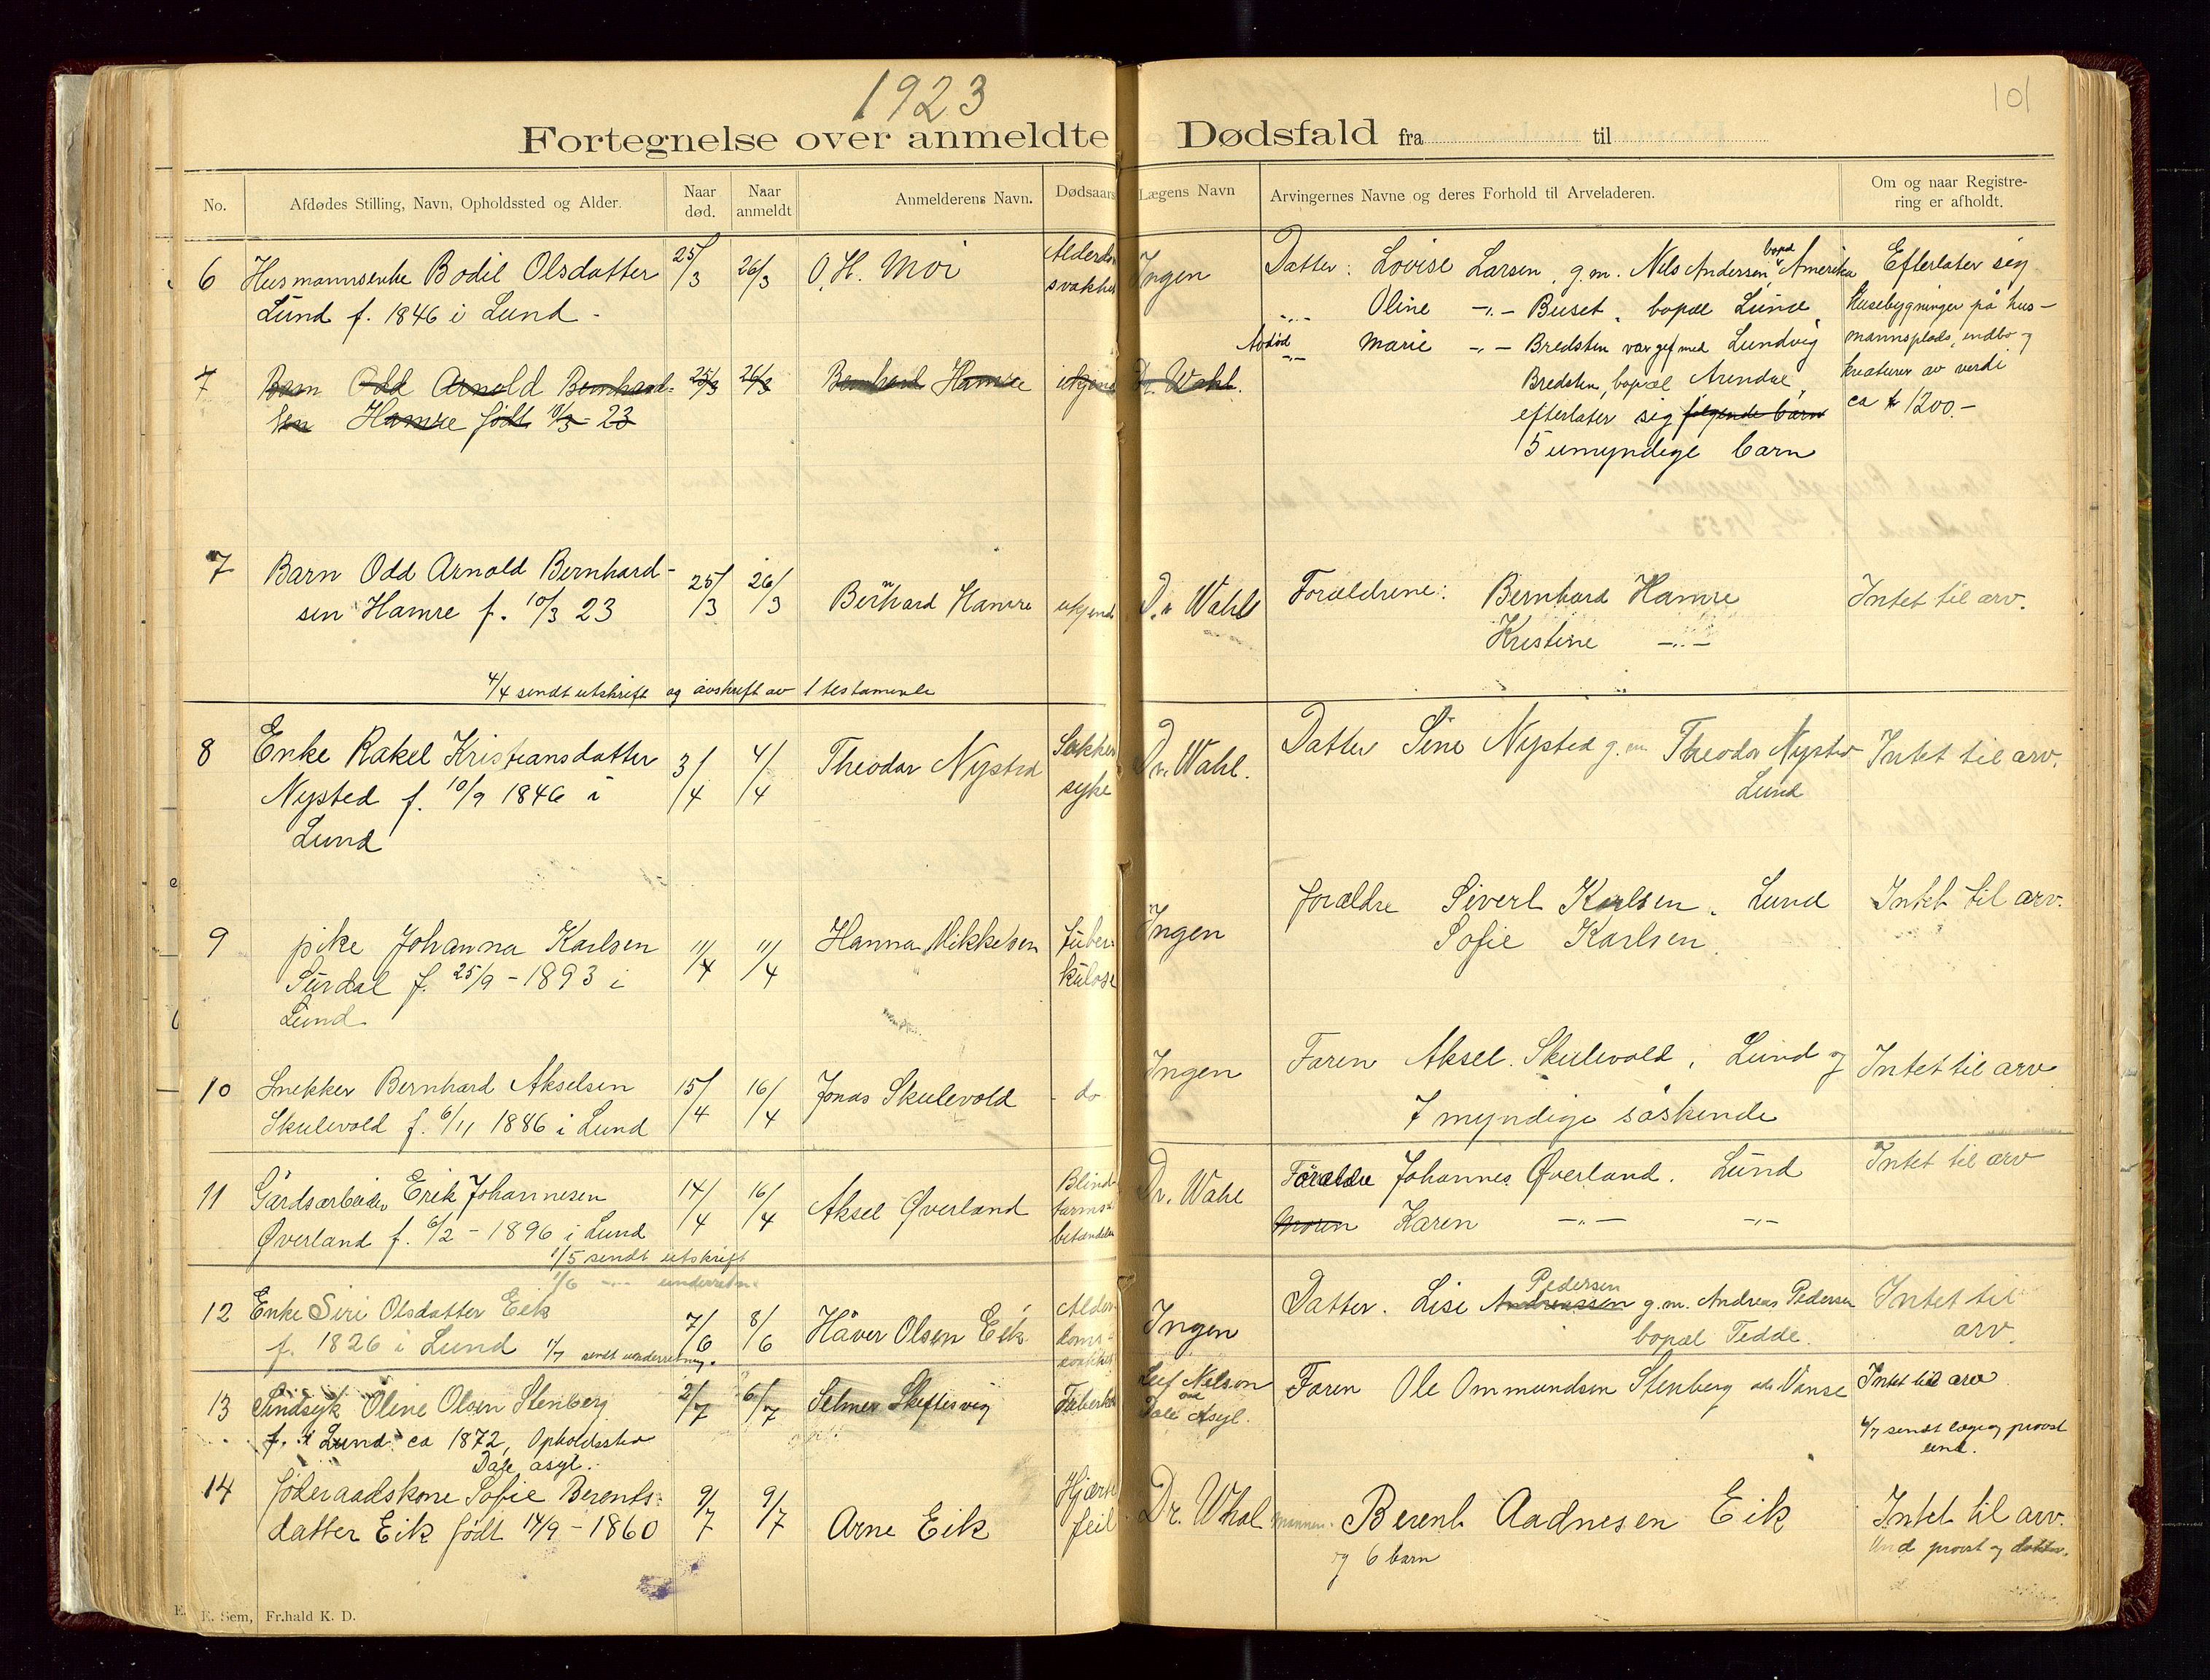 1923
101
Fortegnelse over anmeldte Dødsfald fra til
No.
Afdødes Stilling, Navn, Opholdssted og Alder.
Naar død.
Naar anmeldt
Anmelderens Navn.
Dødsaars
Lægens Navn
Arvingernes Navne og deres Forhold til Arveladeren.
Om og naar Registre-
ring er afholdt.
6 Husmannsenke Bodil Olsdatter 25/3 26/3 O. H. Moi Alderdoms
svakhet Ingen
Lund f. 1846 i Lund -
Datter: Lovise Larsen, g.m. Nils Andersen, bopæl Amerika
-"- Oline -"- Buset, bopæl Lund
Avdød -"- Marie -"- Bredsten var gif med Lundvig
Bredsten, bopæl Arendal,
efterlater sig følgende barn
5 umyndige barn
Efterlater sig
Husebygninger på hus-
mannsplads, indbo og
kreaturer av verdi
ca kr 1200.-
7 Barn Odd Arnold Bernhard- 25/3 26/3 Bernhard Hamre ukjend Dr. Wahl.
sen Hamre født 10/3 - 23
7 Barn Odd Arnold Bernhard- 25/3 26/3 Bernhard Hamre ukjend Dr. Wahl
sen Hamre f. 10/3 23
Forældrene: Bernhard Hamre
Kristine -"-
Intet til arv.
4/4 sendt utskrift og avskrift av 1 testamente
8 Enke Rakel Kristiansdatter 3/4 4/4 Theodor Nysted Sukker
syke Dr. Wahl.
Nysted f. 10/9 1846 i
Lund
Datter Sine Nysted g.m. Theodor Nysted
Lund
Intet til arv.
9 pike Johanna Karlsen 11/4 11/4 Hanna Mikkelsen Tuber-
kulose Ingen
Surdal f. 25/9 - 1893 i
Lund
forældre Sivert Karlsen. Lund
Sofie Karlsen.
Intet til arv.
10 Snekker Bernhard Akselsen 15/4 16/4 Jonas Skulevold - do - Ingen
Skulevold f. 6/11 1886 i Lund
Faren Aksel Skulevold, Lund og
7 myndige søskende
Intet til arv
11 Gårdsarbeider Erik Johannesen 14/4 16/4 Aksel Øverland Blind-
tarms-
betændelse Dr. Wahl
Øverland f. 6/2 - 1896 i Lund
1/5 sendt utskrift
1/6 -"- underretn.
Forældre Johannes Øverland. Lund
Moren Karen -"- -"-
Intet til arv
12 Enke Siri Olsdatter Eik 7/6 8/6 Håver Olsen Eik Alder-
doms-
svakhet Ingen
f. 1826 i Lund 1/7 sendt underretning.
Datter. Lise Andreassen Pedersen g.m. Andreas Pedersen
bopæl Tedde.
Intet til
arv.
13 Sindsyk Oline Olsen Stenberg 2/7 6/7 Selmer Skeftesvig Tuberkul Leif Nilson
Dale Asyl.
f. i Lund ca 1872, Opholdssted
Dale asyl.
Faren Ole Ommundsen Stenberg Vanse
Intet til arv
6/7 sendt læge og provst
und.
14 føderaadskone Sofie Berents- 9/7 9/7 Arne Eik Hjærte
feil Dr. Whal
datter Eik født 14/9 - 1860
mannen. Berent Aadnesen Eik
og 6 barn
Intet til arv.
Und provst og doktor.
E. Sem, Fr.hald K. D.